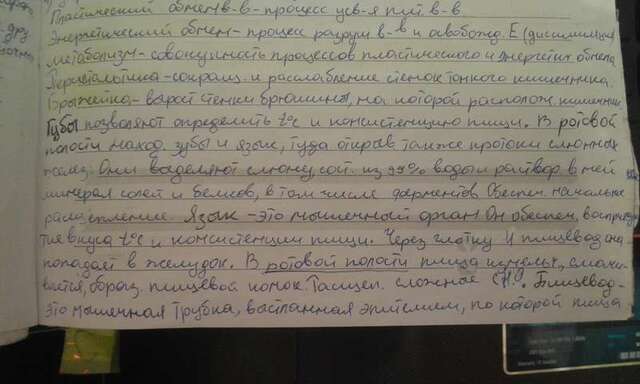 Пластический обмен в-в-процесс усв-я пит. в-в.
Энергетический обмен-процес разруш в-в и освобожд. Е (диссимиляция)
метаболизм-совокупность процессов пластического и энергетич обмена
Перистальтика-сокращ. и расслабление стенок тонкого кишечника.
Брыжейка-вырост стенки брюшины, на которой располож. кишечник
Губы позволяют определить t°с и консистенцию пищи. В ротовой
полости наход. зубы и язык, туда открыв также протоки слюнных
желез. Они выделяют слюну, сост. из 99% воды и раствор. в ней
минерал солей и белков, в том числе ферментов Обеспеч. начальное
расщепление. Язык-это мышечный орган Он обеспеч. восприя
тие вкуса t°с и консистенции пищи. Через глотку и пищевод она
попадает в желудок. В ротовой полости пища измельч., смачи-
вается, образ. пищевой комок. Расщеп. сложные Пищевод-
это мышечная трубка, выстланная эпителием, по которой пища